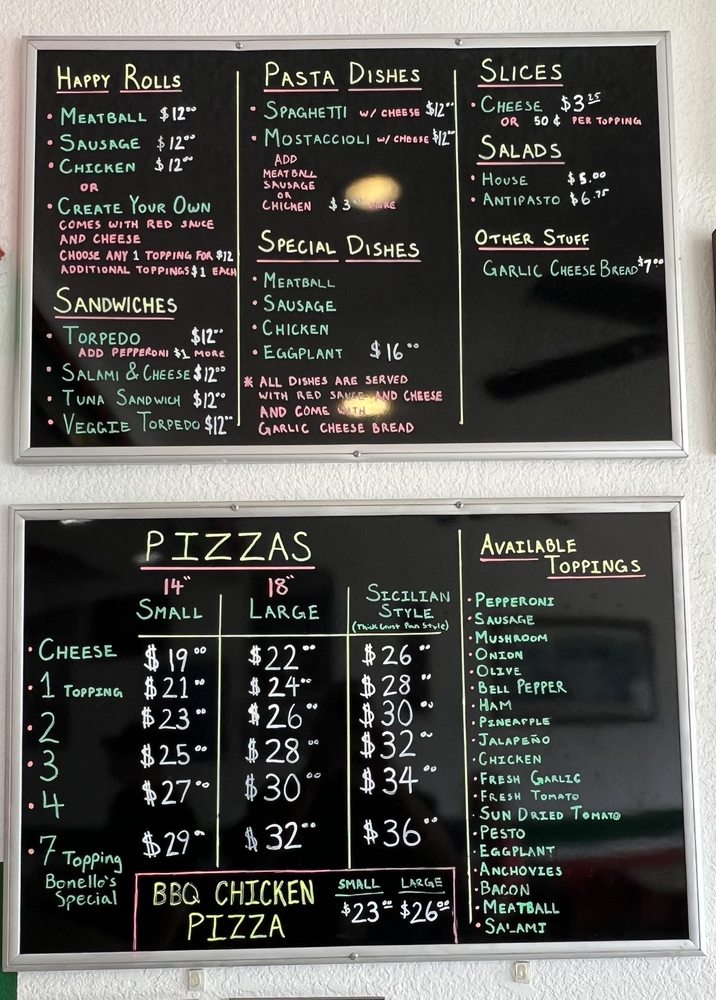 HAPPY ROLLS
• MEATBALL $12⁰⁰
• SAUSAGE $12⁰⁰
• CHICKEN $12⁰⁰
OR
• CREATE YOUR OWN
COMES WITH RED SAUCE
AND CHEESE
CHOOSE ANY 1 TOPPING FOR $12
ADDITIONAL TOPPINGS $1 EACH
SANDWICHES
• TORPEDO $12⁰⁰
ADD PEPPERONI $1 MORE
• SALAMI & CHEESE $12⁰⁰
• TUNA SANDWICH $12⁰⁰
• VEGGIE TORPEDO $12⁰⁰
PASTA DISHES
• SPAGHETTI W/ CHEESE $12⁰⁰
• MOSTACCIOLI W/ CHEESE $12⁰⁰
ADD
MEATBALL
SAUSAGE
OR
CHICKEN $3 MORE
SPECIAL DISHES
• MEATBALL
• SAUSAGE
• CHICKEN
• EGGPLANT $16⁰⁰
* ALL DISHES ARE SERVED
WITH RED SAUCE AND CHEESE
AND COME WITH
GARLIC CHEESE BREAD
SLICES
• CHEESE $3²⁵
OR 50¢ PER TOPPING
SALADS
• HOUSE $5.00
• ANTIPASTO $6.75
OTHER STUFF
GARLIC CHEESE BREAD $7⁰⁰
PIZZAS
14" 18"
SMALL LARGE SICILIAN STYLE
(Thick Crust Pan Style)
• CHEESE $19⁰⁰ $22⁰⁰ $26⁰⁰
• 1 TOPPING $21⁰⁰ $24⁰⁰ $28⁰⁰
• 2 $23⁰⁰ $26⁰⁰ $30⁰⁰
• 3 $25⁰⁰ $28⁰⁰ $32⁰⁰
• 4 $27⁰⁰ $30⁰⁰ $34⁰⁰
• 7 Topping $29⁰⁰ $32⁰⁰ $36⁰⁰
Bonello's
Special
BBQ CHICKEN SMALL LARGE
PIZZA $23⁰⁰ $26⁰⁰
AVAILABLE
TOPPINGS
• PEPPERONI
• SAUSAGE
• MUSHROOM
• ONION
• OLIVE
• BELL PEPPER
• HAM
• PINEAPPLE
• JALAPEÑO
• CHICKEN
• FRESH GARLIC
• FRESH TOMATO
• SUN DRIED TOMATO
• PESTO
• EGGPLANT
• ANCHOVIES
• BACON
• MEATBALL
• SALAMI